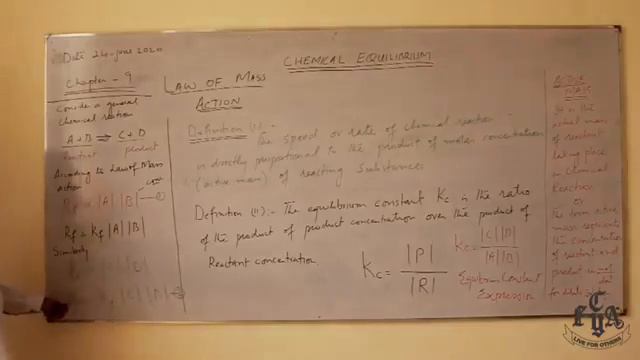 Date 24-June 2020
CHEMICAL EQUILIBRIUM
Chapter - 9
LAW OF MASS
ACTION
Consider a general
chemical reaction
A+B ⇌ C+D
reactant product
According to Law of Mass
action
Rf ∝ |A| |B| —①
Rf = Kf |A| |B|
Similarly
|C| |D|
Definition (i) :-
The speed or rate of chemical reaction
is directly proportional to the product of molar concentration
(active mass) of reacting substances
Definition (ii) :- The equilibrium constant Kc is the ratio
of the product of product concentration over the product of
Reactant concentration
Kc = |P| / |R|
Kc = |C| |D| / |A| |B|
Equilibrium Constant
Expression
ACTIVE
MASS
It is the
actual mass
of reactant
taking place
in chemical
Reaction
or
The term active
mass represents
the concentration
of reactant and
product in mol/dm³
for dilute
LIVE FOR OTHERS